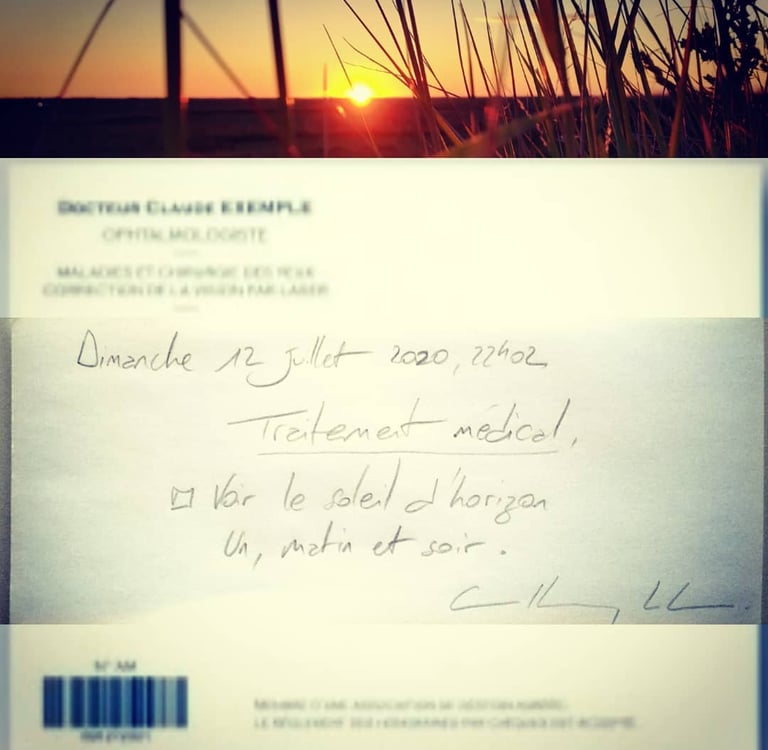 DOCTEUR CLAUDE EXEMPLE
OPHTALMOLOGISTE
MALADIES ET CHIRURGIE DES YEUX
CORRECTION DE LA VISION PAR LASER
Dimanche 12 Juillet 2020, 22h02
Traitement médical,
Voir le soleil d'horizon
Un, matin et soir.
N° AM
MEMBRE D'UNE ASSOCIATION DE GESTION AGRÉÉE
LE RÈGLEMENT DES HONORAIRES PAR CHÈQUES EST ACCEPTÉ